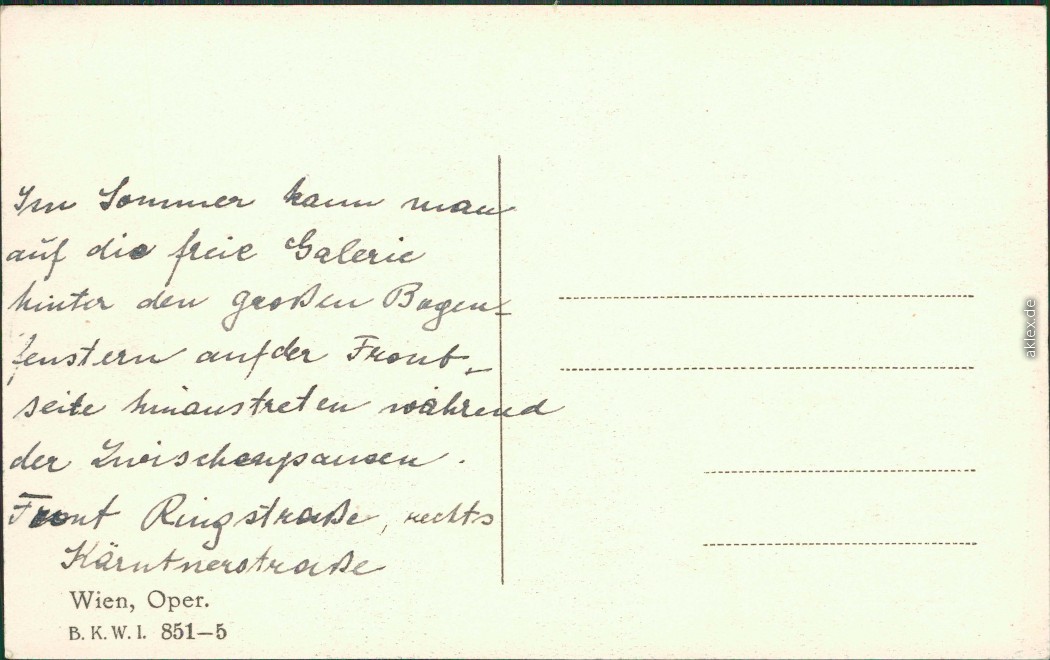 Im Sommer kann man
auf die freie Galerie
hinter den großen Bogen-
fenstern auf der Front-
seite hinaustreten während
der Zwischenpausen.
Front Ringstraße, rechts
Kärntnerstraße
Wien, Oper.
B. K. W. I. 851-5
aklex.de